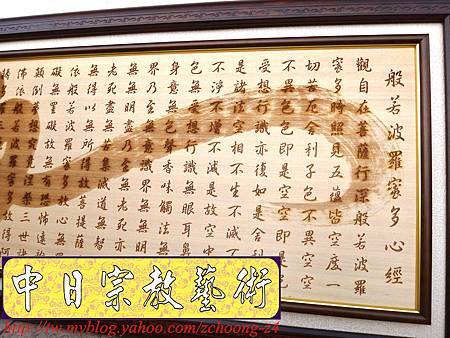 般若波羅蜜多心經
觀自在菩薩行深般若波羅
蜜多時照見五蘊皆空度一
切苦厄舍利子色不異空空
不異色色即是空空即是色
受想行識亦復如是舍利子
是諸法空相不生不滅不
不淨不增不減是故空中
色無受想行識無眼耳鼻
身意無色聲香味觸法無
界乃至無意識界無無明
無無明盡乃至無老死亦
老死盡無苦集滅道無智
無得以無所得故菩提薩
依般若波羅蜜多故心無
礙無罣礙故無有恐怖遠
顛倒夢想究竟涅槃三世諸
佛依般若波羅蜜多故得阿
中日宗教藝術
http://tw.myblog.yahoo.com/zchoong-z4